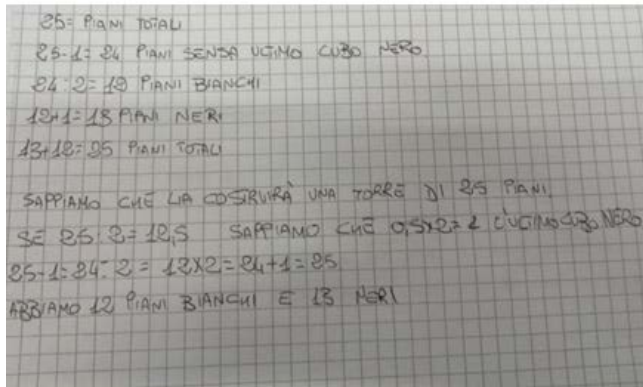 25= PIANI TOTALI
25-1= 24 PIANI SENZA ULTIMO CUBO NERO
24:2= 12 PIANI BIANCHI
12+1= 13 PIANI NERI
13+12= 25 PIANI TOTALI
SAPPIAMO CHE LIA COSTRUIRÀ UNA TORRE DI 25 PIANI.
SE 25:2= 12,5 SAPPIAMO CHE 0,5x2= 1 L'ULTIMO CUBO NERO
25-1= 24:2 = 12x2= 24+1= 25
ABBIAMO 12 PIANI BIANCHI E 13 NERI